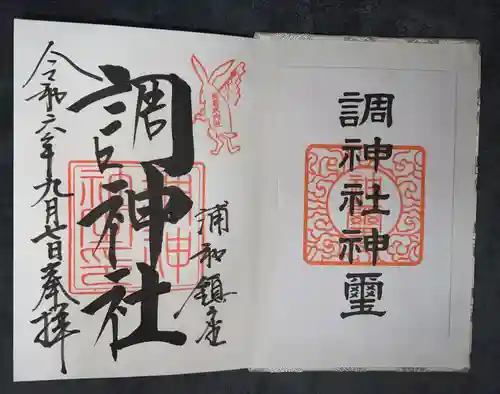 調神社神璽
浦和鎮座
調神社
令和六年九月七日奉拝